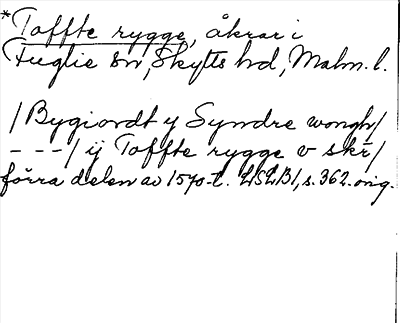 *Toffte rygge, åkrar i
Fuglie sn, Skytts hd, Malm. l.
/Bygiordt y Syndre wongh/
- - -/ ij Toffte rygge v skr̄/
förra delen av 1570-t. LSLB1, s. 362. orig.